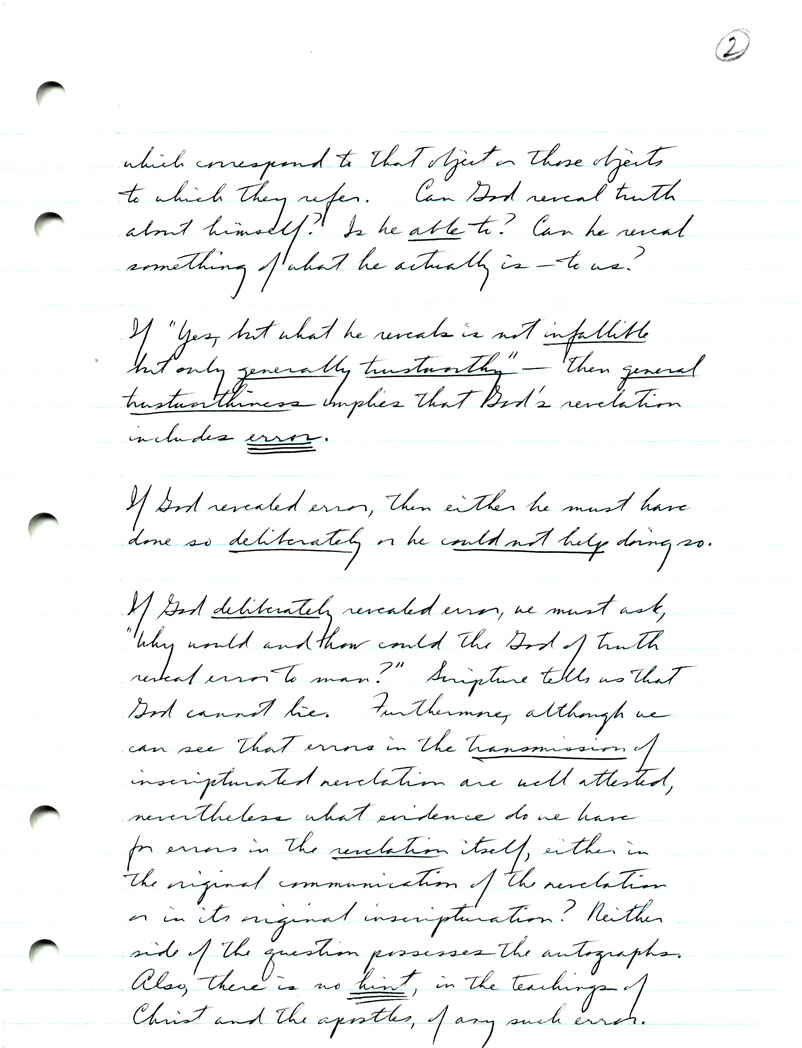 2
which correspond to that object or those objects
to which they refer. Can God reveal truth
about himself? Is he able to? Can he reveal
something of what he actually is — to us?
If "Yes, but what he reveals is not infallible
but only generally trustworthy" — then general
trustworthiness implies that God's revelation
includes error.
If God revealed error, then either he must have
done so deliberately or he could not help doing so.
If God deliberately revealed error, we must ask,
"Why would and how could the God of truth
reveal error to man?" Scripture tells us that
God cannot lie. Furthermore, although we
can see that errors in the transmission of
inscripturated revelation are well attested,
nevertheless what evidence do we have
for errors in the revelation itself, either in
the original communication of the revelation
or in its original inscripturation? Neither
side of the question possesses the autographs.
Also, there is no hint, in the teachings of
Christ and the apostles, of any such error.